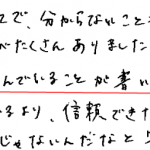 て、分からないこと
がたくさんありました
んでいることが書い
るより、信頼できた
じゃないんだなと